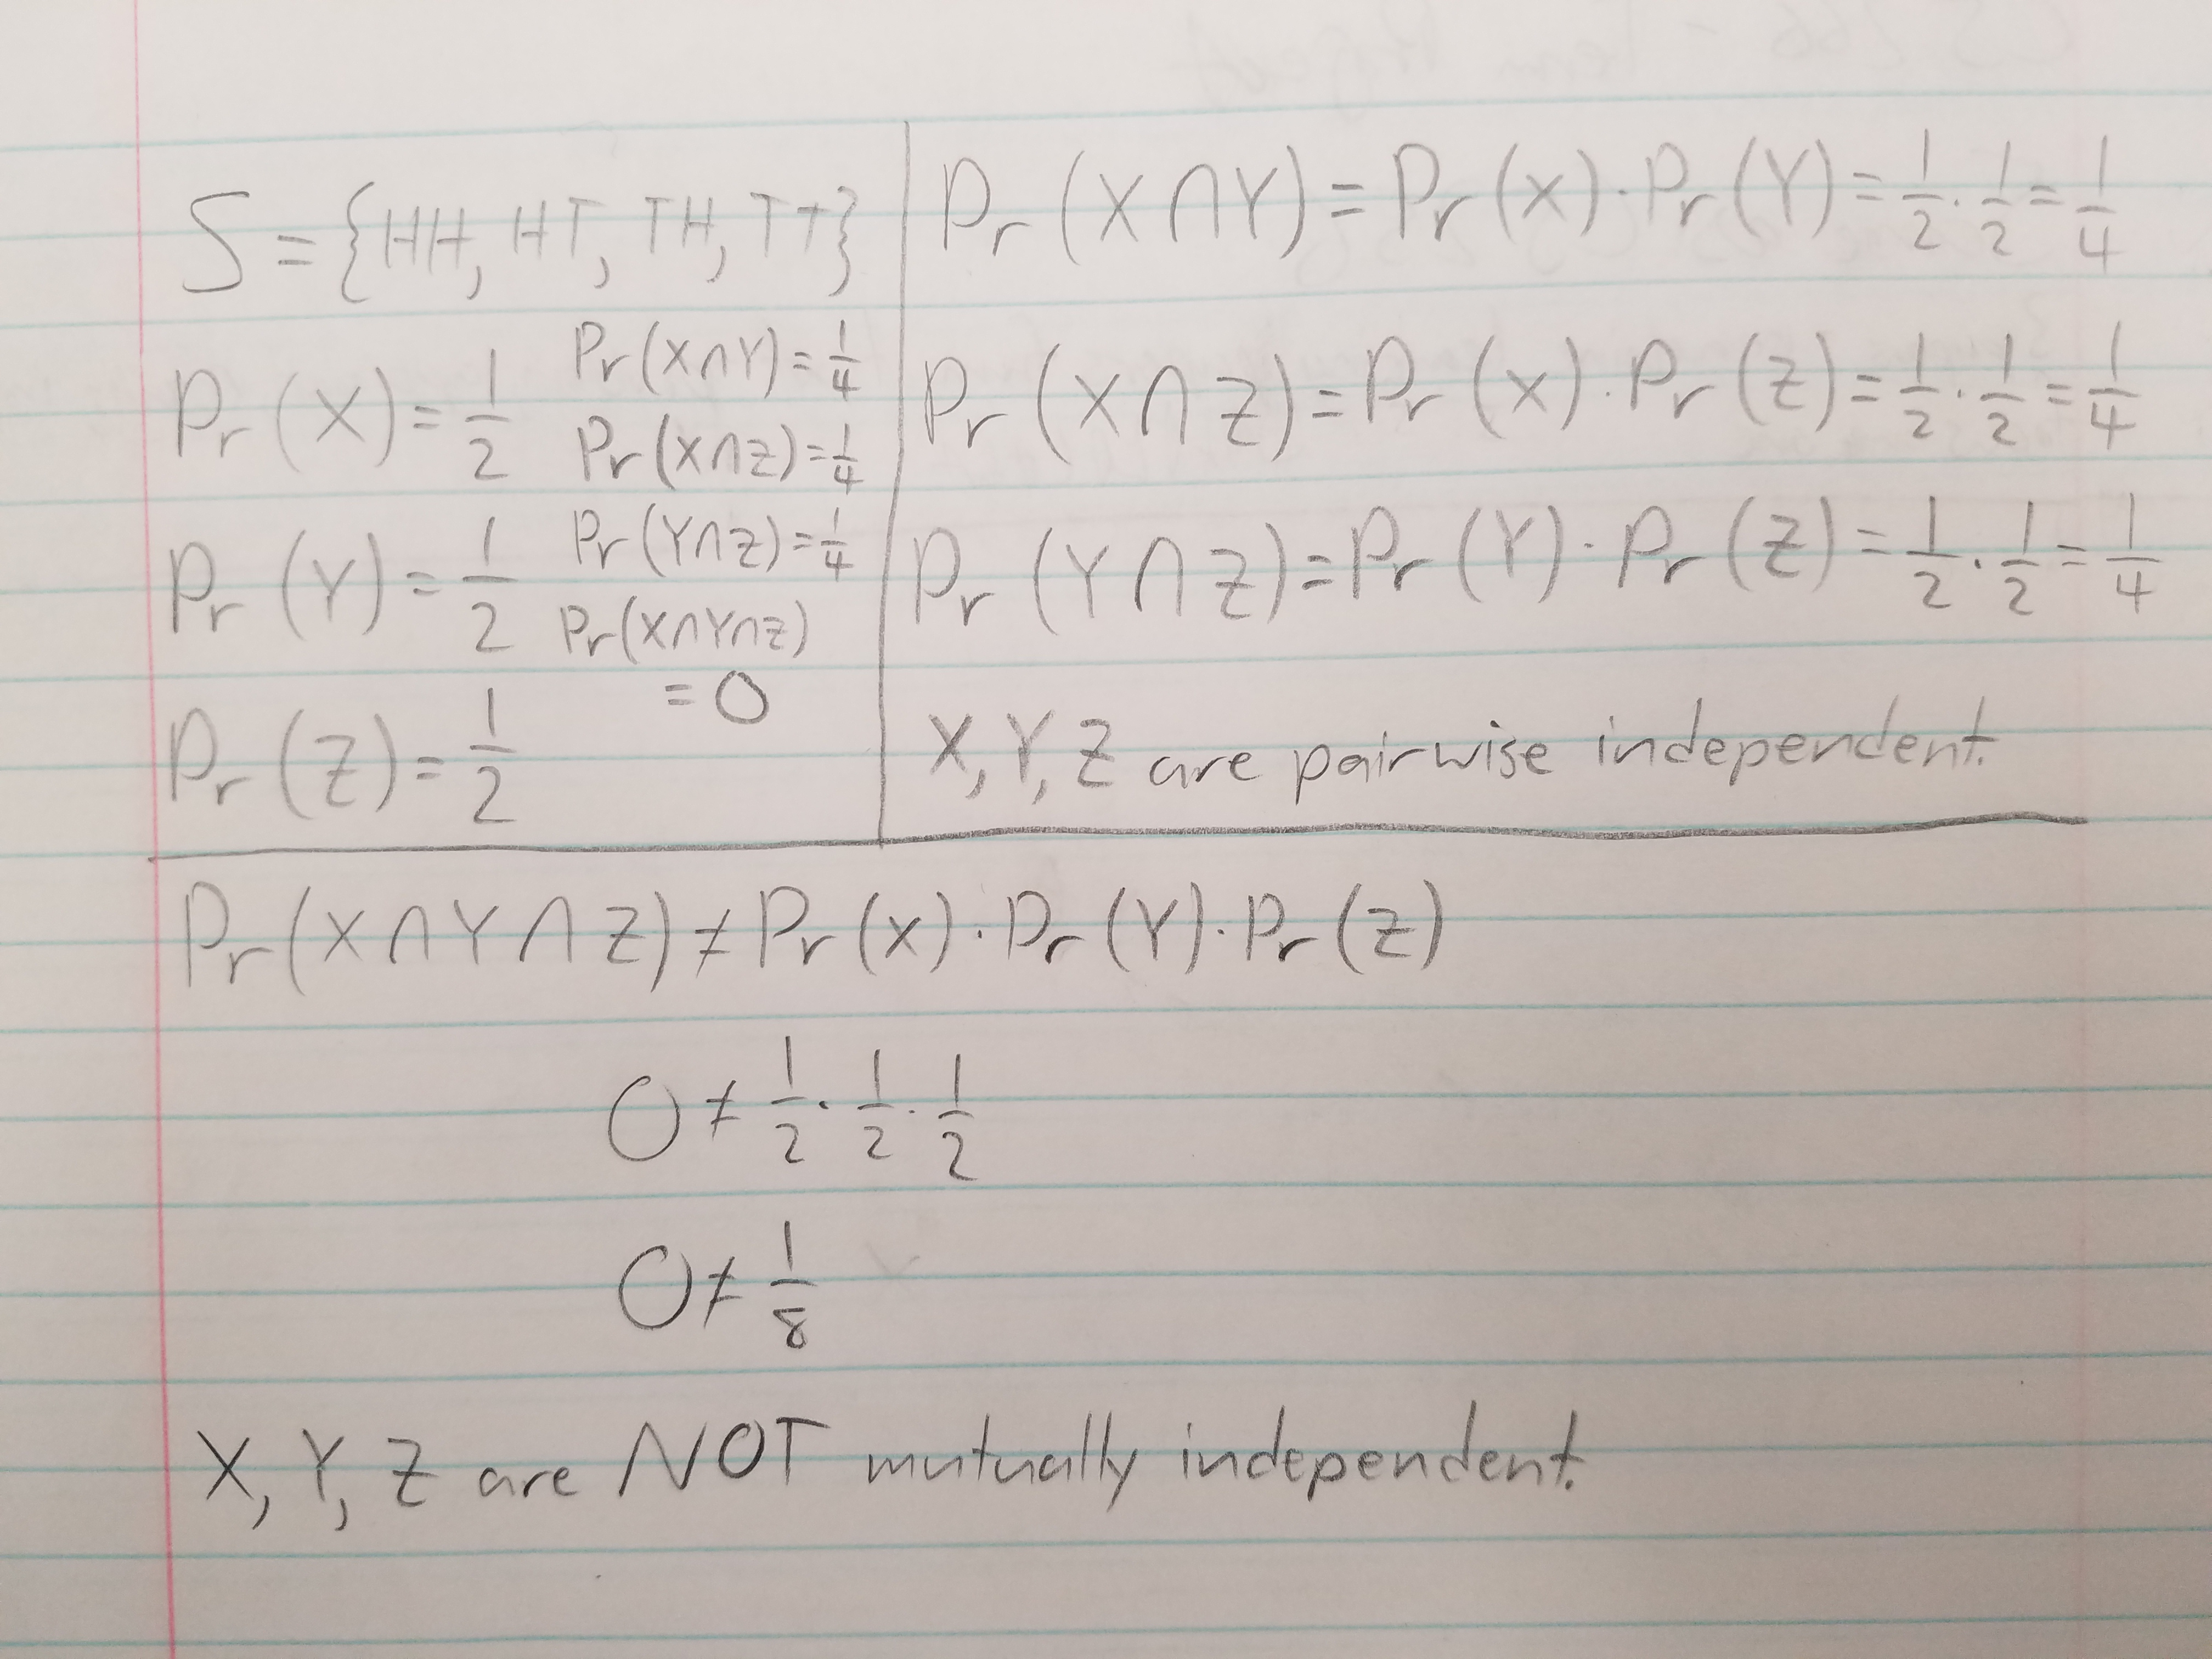 S = {HH, HT, TH, TT}
Pr(X) = 1/2
Pr(Y) = 1/2
Pr(Z) = 1/2
Pr(X∩Y) = 1/4
Pr(X∩Z) = 1/4
Pr(Y∩Z) = 1/4
Pr(X∩Y∩Z)
= 0
Pr(X∩Y) = Pr(X)·Pr(Y) = 1/2·1/2 = 1/4
Pr(X∩Z) = Pr(X)·Pr(Z) = 1/2·1/2 = 1/4
Pr(Y∩Z) = Pr(Y)·Pr(Z) = 1/2·1/2 = 1/4
X, Y, Z are pairwise independent.
Pr(X∩Y∩Z) ≠ Pr(X)·Pr(Y)·Pr(Z)
0 ≠ 1/2·1/2·1/2
0 ≠ 1/8
X, Y, Z are NOT mutually independent.